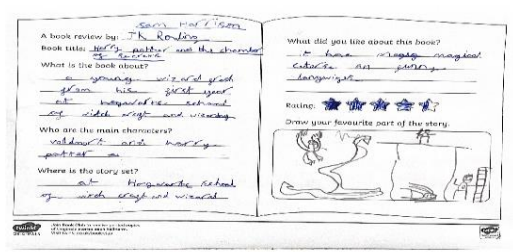 sam Harrison
A book review by: Jk Rowling
Book title: Harry potter and the chamber
of secrets
What is the book about?
a young wizard fresh
from his first year
at hogwarts school
of witch craft and wizardry
Who are the main characters?
voldmort and harry
potter
Where is the story set?
at Hogwarts School
of witch craft and wizard
What did you like about this book?
it has magical
funny
Rating:
Draw your favourite part of the story.